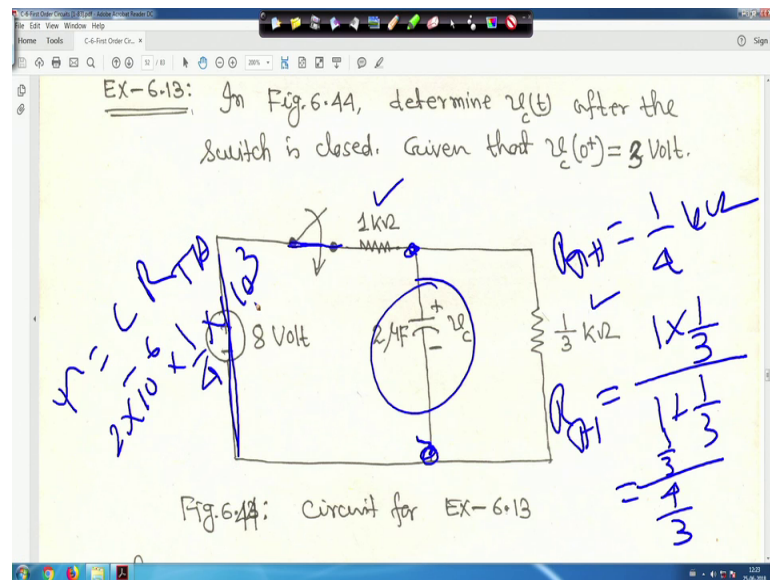 C-6-First Order Circuits [1-83].pdf - Adobe Acrobat Reader DC
File Edit View Window Help
Home Tools C-6-First Order Cir... × Sign
52 / 83 200%
EX-6.13: In Fig.6.44, determine v_c(t) after the
switch is closed. Given that v_c(0⁺) = 3 Volt.
1kΩ
R_TH = 1/4 kΩ
τ = C R_TH
2×10⁻⁶ × 1/4 × 10³
8 Volt
+
2μF v_c
−
1/3 kΩ
R_TH = (1 × 1/3) / (1 + 1/3)
= (1/3) / (4/3)
Fig.6.44: Circuit for EX-6.13
12:23